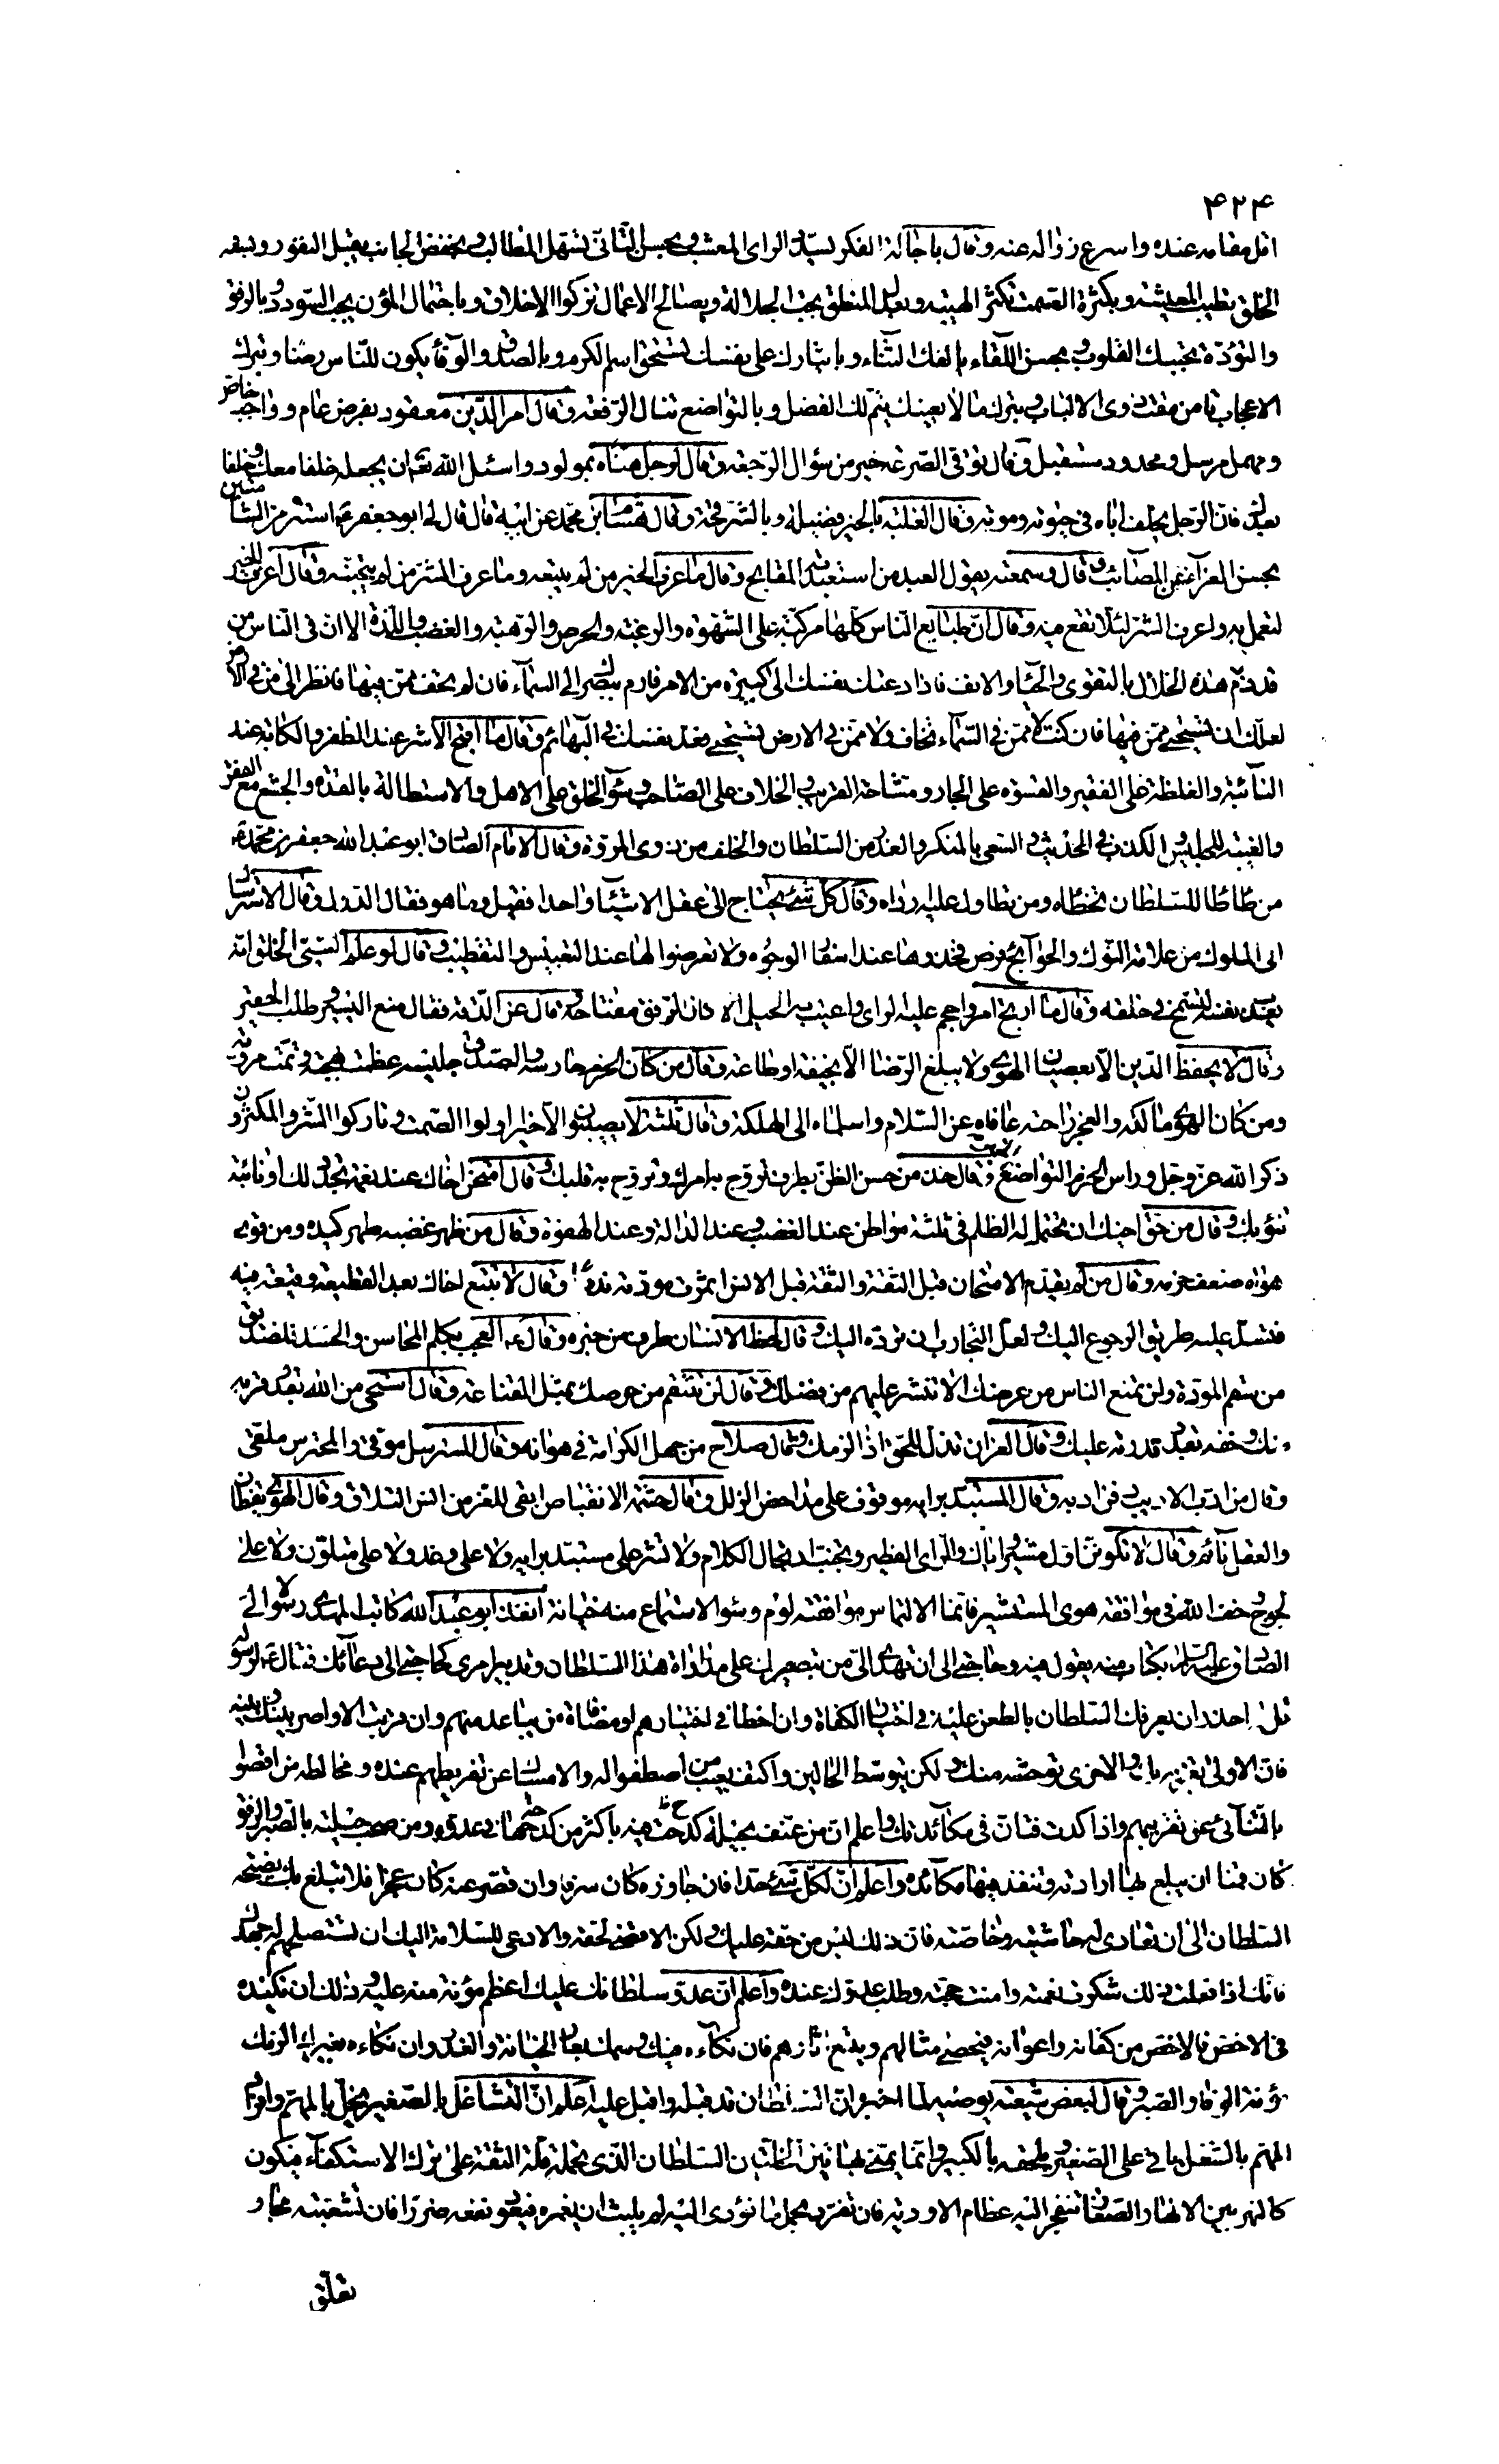 ۴۲۴
اقل مقامه عنده واسرع زواله عنه وقال باجالة الفكر يستدل الراى المعشب وبحسن التأنى تسهل المطالب وبخفض الجانب يقبل النفور وبسعة
الخلق يطيب المعيشة وبكثرة الصمت تكثر الهيبة وبعدل المنطق يجب الجلالة وبصالح الاعمال تزكوا الاخلاق وباحتمال المؤن يجب السودد وبالرفق
والتؤدة يحبك القلوب وبحسن اللقاء يالفك الثناء وبايثارك على نفسك تستحق اسم الكرم وبالصدق والوفاء يكون للناس رضا وبترك
الاعجاب تامن مقت ذوى الالباب وبترك ما لا يعنيك يتم لك الفضل وبالتواضع تنال الرفعة وقال امر الدين معقود بفرض عام وواجب خاص
ومهمل مرسل ومحدود مستقبل وقال توقى الصرعة خير من سؤال الرجعة وقال لرجل هناه بمولود واسئل الله تعالى ان يجعله خلفا معك وخلفا
بعدك فان الرجل يخلف اباه فى حيوته وموته وقال الغلبة بالخير فضيلة وبالشر قحة وقال هشام بن محمد عن ابيه قال قال لى ابو جعفر استتر من الشامتين
بحسن العزآء عن المصائب قال وسمعته يقول العبد من استعبدته المقابح وقال ما عرف الخير من لم يتبعه وما عرف الشر من لم يجتنبه وقال اعرف الخير
لتعمل به واعرف الشر لئلا تقع فيه وقال ان طبايع الناس كلها مركبة على الشهوة والرغبة والحرص والرهبة والغضب واللذة الا ان فى الناس من
قد ذم هذه الخلال بالتقوى والحياء والانف فاذا دعتك نفسك الى كبيرة من الامر فارم ببصرك الى السمآء فان لم تخف ممن فيها فانظر الى من فى الارض
لعلك ان تستحيى ممن فيها فان كنت لا ممن فى السمآء تخاف ولا ممن فى الارض تستحيى فعد نفسك فى البهائم وقال ما اقبح الاشر عند الظفر والكابة عند
النائبة والغلظة على الفقير والقسوة على الجار ومشاحة القريب والخلاف على الصاحب وسوء الخلق على الاهل والاستطالة بالقدرة والجشع مع الفقر
والغيبة للجليس والكذب فى الحديث والسعى بالمنكر والغدر من السلطان والخلف من ذوى المروة وقال الامام الصادق ابو عبد الله جعفر بن محمد
من طاطا للسلطان تخطاه ومن تطاول عليه رداه وقال كل شئ يحتاج الى عقل الا شيئا واحدا فقيل وما هو فقال الدول وقال الاسترسال
الى الملوك من علامة النوك والحوآئج فرص فخذوها عند اسفار الوجوه ولا تعرضوا لها عند التعبيس والتقطيب وقال لو علم السيئ الخلق انه
يعذب نفسه لتسمح فى خلقه وقال ما ارتج امر واحجم عليه الراى واعيت به الحيل الا كان الرفق مفتاحه وقال عن الدقة فقال منع اليسير وطلب الحقير
وقال لا يحفظ الدين الا بعصيان الهوى ولا يبلغ الرضا الا بخيفة او طاعة وقال من كان الحزم حارسه والصدق جليسه عظمت بهجته وتمت مروته
ومن كان الهوى مالكه والعجز راحته عاقاه عن السلام واسلماه الى الهلكة وقال ثلثة لا يصيبون الا خيرا اولوا الصمت وتاركوا الشر والمكثرون
ذكر الله عز وجل وراس الحزم التواضع وقال خذ من حسن الظن بطرف تروج به امرك وتروح به قلبك وقال امتحن اخاك عند نعمة تجدد لك او نائبة
تنوبك وقال من حق اخيك ان تحتمل له الظلم فى ثلثة مواطن عند الغضب وعند الذلة وعند الهفوة وقال من ظهر غضبه ظهر كيده ومن قوى
هواه ضعف حزمه وقال من لم يقدم الامتحان قبل الثقة والثقة قبل الانس اثمرت مودته ندما وقال لا تتبع اخاك بعد القطيعة وقيعة فيه
فتسد عليه طريق الرجوع اليك ولعل التجارب ان ترده اليك وقال لحظ الانسان طرف من خبره وقال العجب يكلم المحاسن والحسد للصديق
من سقم المودة ولن تمنع الناس من عرضك الا تنشر عليهم من فضلك وقال لن تنتقم من حرصك بمثل القناعة وقال استحى من الله بقدر قربه
منك وخفه بقدر قدرته عليك وقال العز ان تذل للحق اذا لزمك وقال صلاح من جهل الكرامة فى هوانه وقال المسترسل موقى والمحترس ملقى
وقال من ادب الاديب دفن ادبه وقال المستبد برايه موقوف على مداحض الزلل وقال حشمة الانقباض ابقى للعز من انس التلاق وقال الهوى يقظان
والعقل نائم وقال لا تكونن اول مشير واياك والراى الفطير وتجنب ارتجال الكلام ولا تشر على مستبد برايه ولا على وغد ولا على متلون ولا على
لجوج وخف الله فى موافقة هوى المستشير فانما الالتماس موافقته لوم وسوء الاستماع منه خيانة انفذ ابو عبد الله كاتب المهدى رسولا الى
الصادق عليه السلام بكتاب منه يقول فيه وحاجتى الى ان تهدى الى من تبصيرك على مداراة هذا السلطان وتدبير امرى كحاجتى الى دعائك فقال لرسوله
قل له احذر ان يعرفك السلطان بالطعن عليه فى اختيار الكفاة وان اخطا فى اختيارهم او مصافاة من يباعد منهم وان قربت الاواصر بينك وبينه
فان الاولى تغريه بك والاخرى توحشه منك ولكن تتوسط الحالين واكتف بعيب من اصطفوا له والامساك عن تقريظهم عنده ومخالطة من اقصوا
بالتنائى عن تقريبهم واذا كدت فتان فى مكائدتك واعلم ان من عنف بخيله كدحت فيه باكثر من كدحها فى عدوه ومن صحب خيله بالصبر والرفق
كان قمنا ان يبلع بها ارادته وتنفذ فيها مكائده واعلم ان لكل شئ حدا فان جاوزه كان سرفا وان قصر عنه كان عجزا فلا تبلغ بك نصيحة
السلطان الى ان تعادى له حاشيته وخاصته فان ذلك ليس من حقه عليك ولكن الاقضى لحقه والادعى للسلامة اليك ان تستصلحهم له جهدك
فانك اذا فعلت ذلك شكرت نعمته وامنت حجته وطلب عدوك عنده واعلم ان عدو سلطانك عليك اعظم مؤنة منه عليه وذلك ان تكيده
فى الاخص فالاخص من كفاته واعوانه فيحصى مثالهم ويتتبع اثارهم فان نكاه فيك وسمك بعار الخيانة والغدر وان نكاه بغيرك الزمك
مؤنة الوفاء والصبر وقال لبعض شيعته يوصيه لما اخبر ان السلطان قد قبله واقبل عليه اعلم ان التشاغل بالصغير يخل بالمهم وافراد
المهم بالشغل ياتى على الصغير ويلحقه بالكبير وانما يمنى بهاتين الخلتين السلطان الذى تحمله قلة الثقة على ترك الاستكفآء فيكون
كالنهر بين الانهار الصغار تتفجر اليه عظام الاودية فان تفرد بحمل ما تؤدى اليه لم يلبث ان يغمره فيعود نفعه ضررا فان تشعبته مجار
تعلق